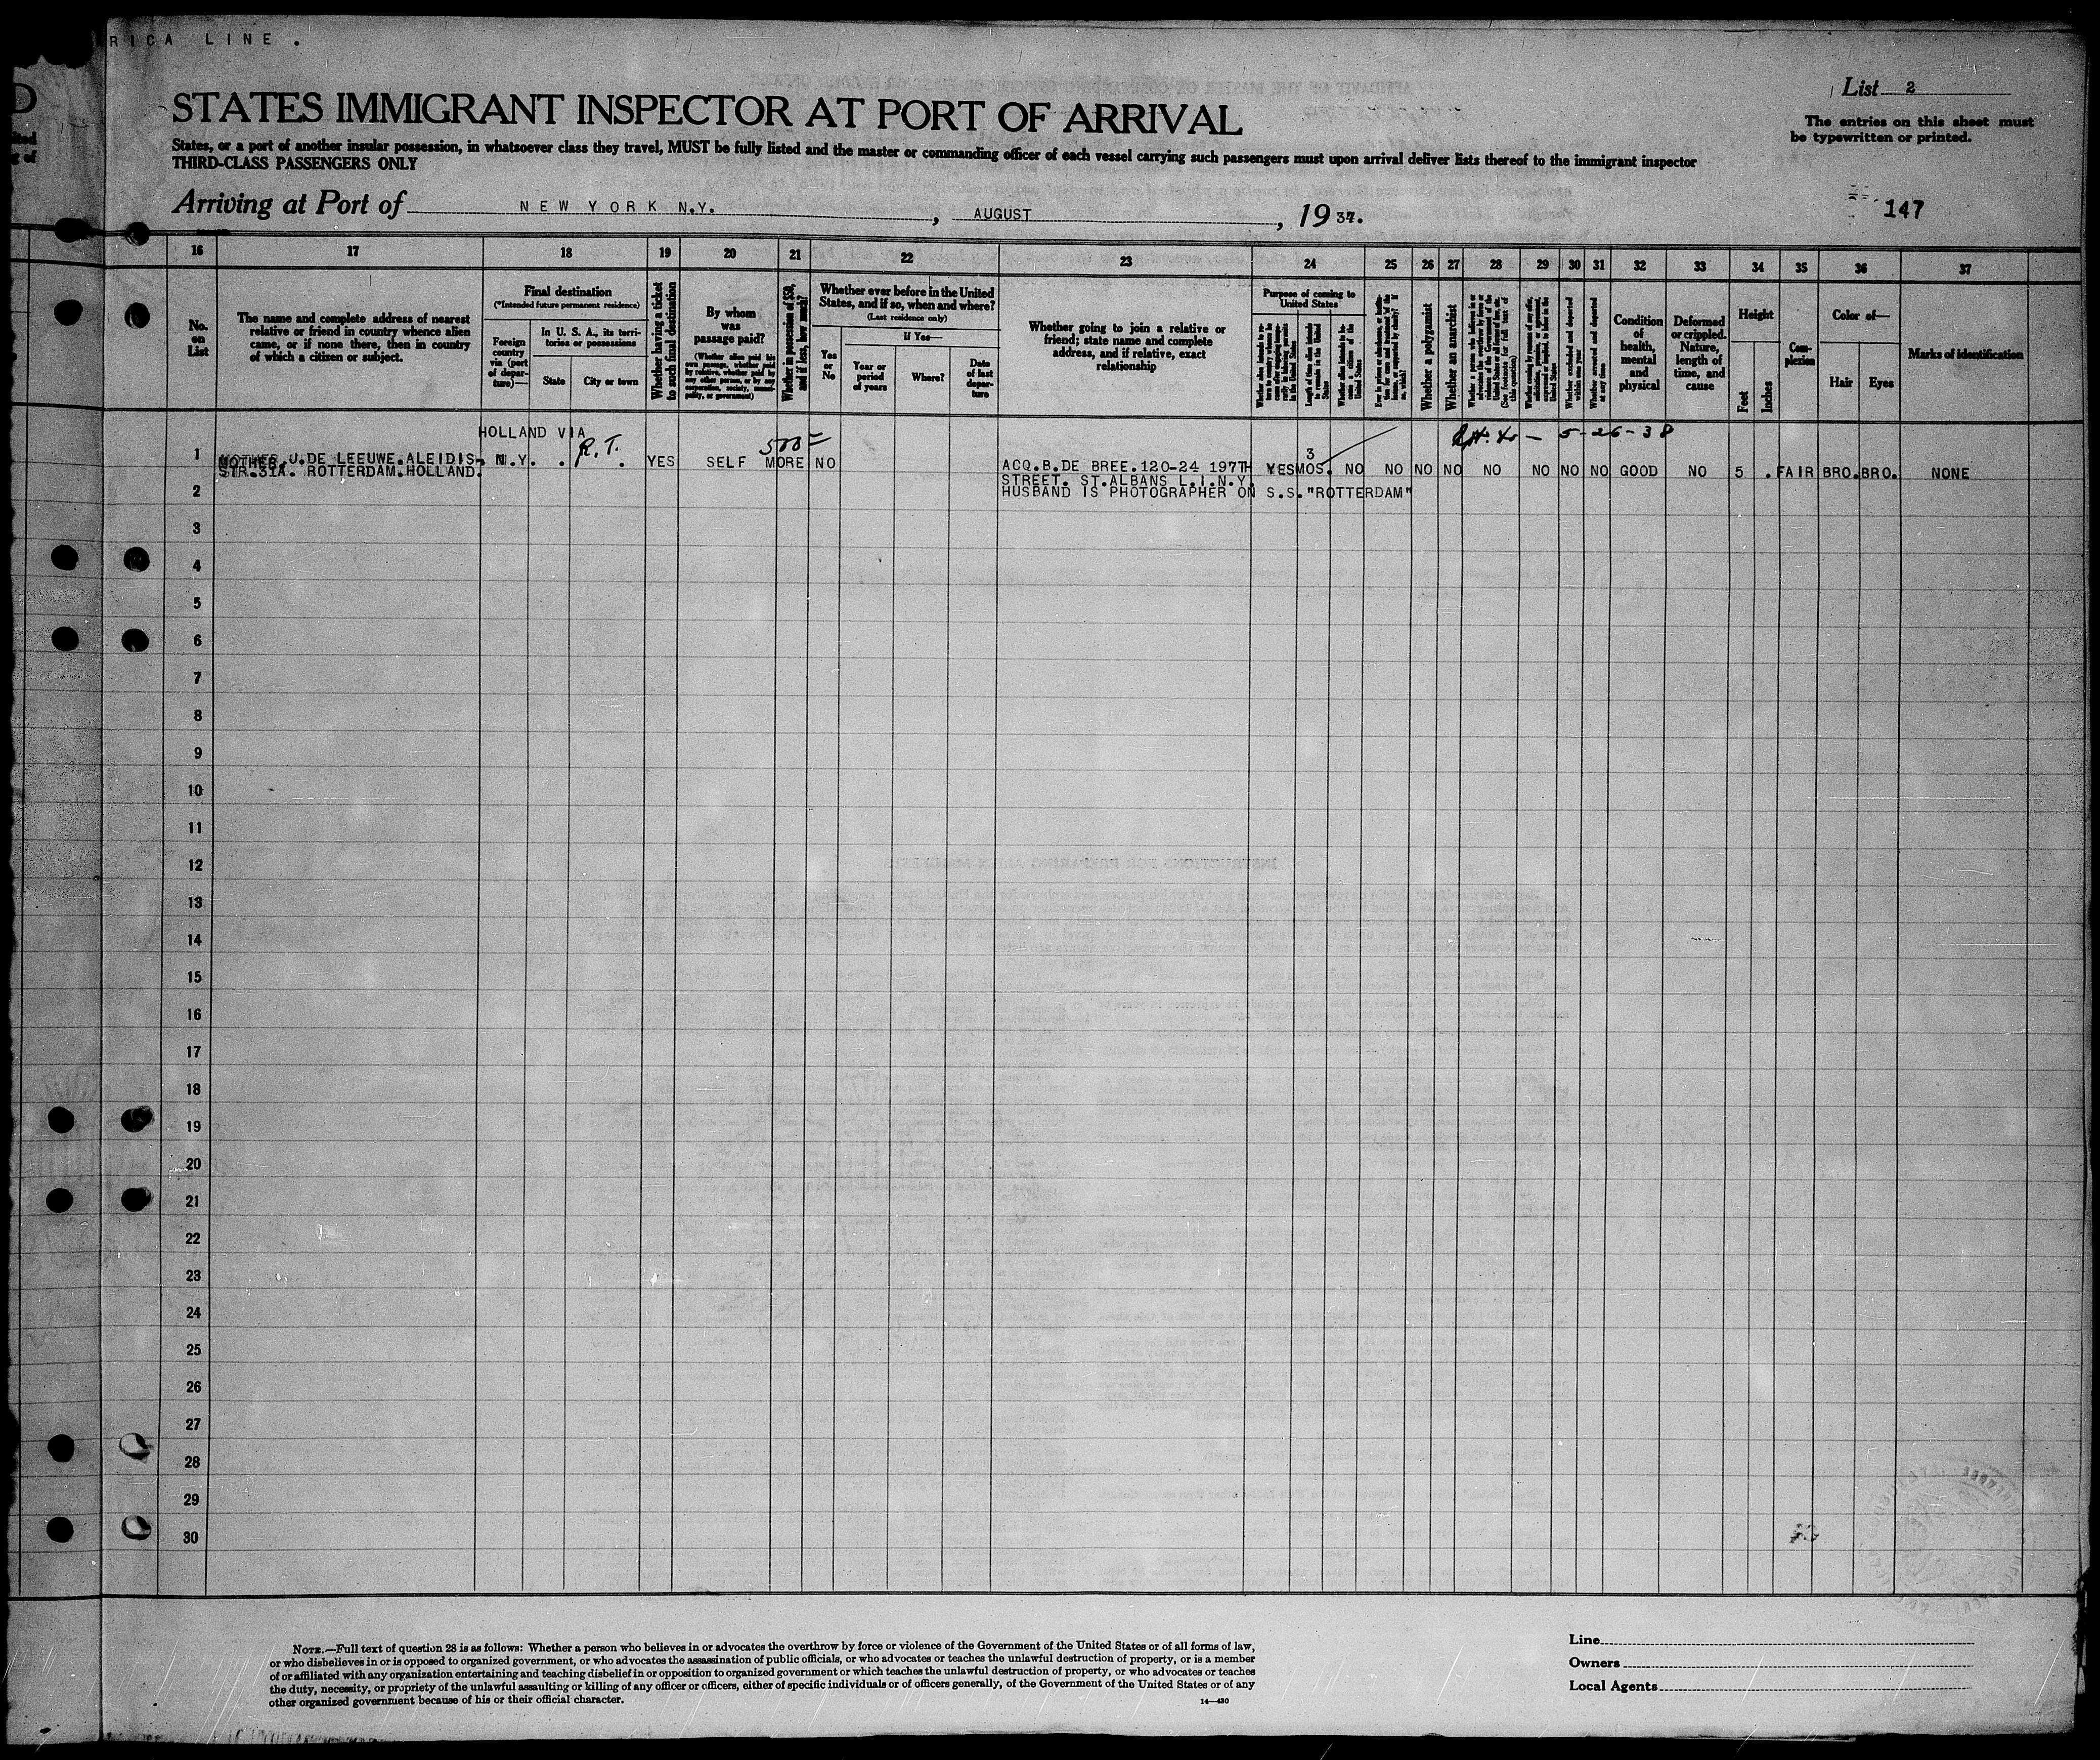 RICA LINE.
List 2
STATES IMMIGRANT INSPECTOR AT PORT OF ARRIVAL
The entries on this sheet must
be typewritten or printed.
States, or a port of another insular possession, in whatsoever class they travel, MUST be fully listed and the master or commanding officer of each vessel carrying such passengers must upon arrival deliver lists thereof to the immigrant inspector
THIRD-CLASS PASSENGERS ONLY
Arriving at Port of NEW YORK N.Y., AUGUST, 1937.
147
16 17 18 19 20 21 22 23 24 25 26 27 28 29 30 31 32 33 34 35 36 37
No.
on
List
The name and complete address of nearest
relative or friend in country whence alien
came, or if none there, then in country
of which a citizen or subject.
Final destination
(*Intended future permanent residence)
Foreign
country
via (port
of depar-
ture)—
In U. S. A., its terri-
tories or possessions
State
City or town
Whether having a ticket
to such final destination
By whom
was
passage paid?
(Whether alien paid his
own passage, whether paid
by relative, whether paid by
any other person, or by any
corporation, society, munici-
pality, or government)
Whether in possession of $50,
and if less, how much?
Whether ever before in the United
States, and if so, when and where?
(Last residence only)
Yes
or
No
If Yes—
Year or
period
of years
Where?
Date
of last
depar-
ture
Whether going to join a relative or
friend; state name and complete
address, and if relative, exact
relationship
Purpose of coming to
United States
Length of time alien intends
to remain in the United
States
Whether alien intends to be-
come a citizen of the
United States
Whether a polygamist
Whether an anarchist
Whether excluded and deported
within one year
Whether arrested and deported
at any time
Condition
of
health,
mental
and
physical
Deformed
or crippled.
Nature,
length of
time, and
cause
Height
Feet
Inches
Com-
plexion
Color of—
Hair
Eyes
Marks of identification
HOLLAND VIA
R.T.
500=
5-26-38
1 MOTHER.J.DE LEEUWE.ALEIDIS- N.Y. . . YES SELF MORE NO ACQ.B.DE BREE.120-24 197TH YES 3 MOS. NO NO NO NO NO NO NO NO GOOD NO 5 . FAIR BRO. BRO. NONE
STR.31A. ROTTERDAM.HOLLAND.
STREET. ST.ALBANS L.I.N.Y.
2 HUSBAND IS PHOTOGRAPHER ON S.S."ROTTERDAM"
3
4
5
6
7
8
9
10
11
12
13
14
15
16
17
18
19
20
21
22
23
24
25
26
27
28
29
30
NOTE.—Full text of question 28 is as follows: Whether a person who believes in or advocates the overthrow by force or violence of the Government of the United States or of all forms of law,
or who disbelieves in or is opposed to organized government, or who advocates the assassination of public officials, or who advocates or teaches the unlawful destruction of property, or is a member
of or affiliated with any organization entertaining and teaching disbelief in or opposition to organized government or which teaches the unlawful destruction of property, or who advocates or teaches
the duty, necessity, or propriety of the unlawful assaulting or killing of any officer or officers, either of specific individuals or of officers generally, of the Government of the United States or of any
other organized government because of his or their official character.
14—430
Line
Owners
Local Agents